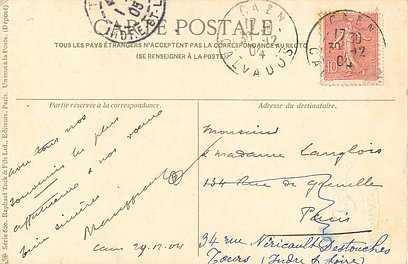 CARTE POSTALE
TOUS LES PAYS ÉTRANGERS N'ACCEPTENT PAS LA CORRESPONDANCE AU RECTO
(SE RENSEIGNER A LA POSTE)
CAEN
31-12
04
CALVADOS
CAEN
17 30
30-12
04
CA
10
05
INDRE-ET-L
Partie réservée à la correspondance.
Adresse du destinataire.
avec tous nos
souvenirs les plus
affectueux & nos vœux
bien sincères
Caen 29.12.04
Monsieur
& madame Langlois
134 rue de Grenelle
Paris
34 rue Néricault Destouches
Tours (Indre & Loire)
Série 620. Raphael Tuck & Fils Ltd, Editeurs, Paris. Un mot à la Poste. (Déposé)